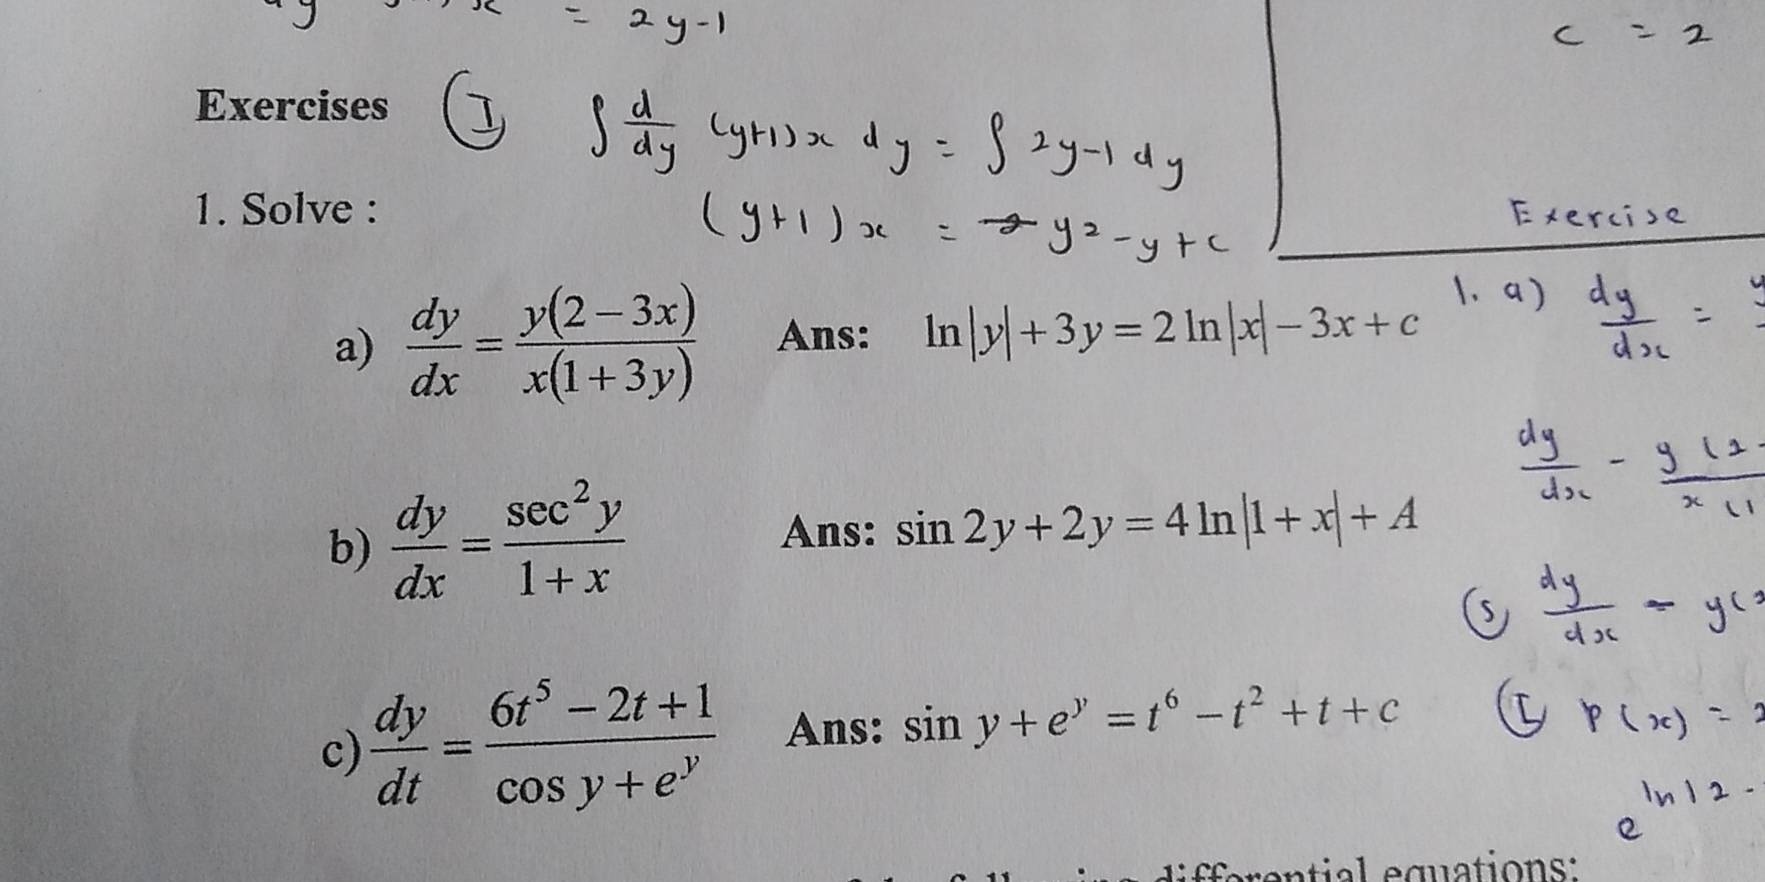 = 2y-1
c = 2
Exercises
Ⓘ ∫ d/dy (y+1)x dy = ∫ 2y-1 dy
1. Solve :
(y+1)x = y² - y + c
Exercise
a) dy/dx = y(2 − 3x)/x(1 + 3y) Ans: ln|y| + 3y = 2 ln|x| − 3x + c
1. a) dy/dx =
dy/dx - y(2-
x(1
b) dy/dx = sec² y/1 + x Ans: sin 2y + 2y = 4 ln|1 + x| + A
Ⓢ dy/dx - y(
c) dy/dt = 6t⁵ − 2t + 1/cos y + eʸ Ans: sin y + eʸ = t⁶ − t² + t + c
Ⓘ P(x) =
e^ln|2-
differential equations: